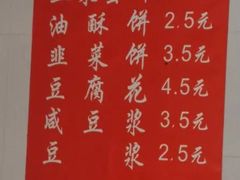 油酥饼 2.5元
韭菜饼 3.5元
豆腐花 4.5元
咸豆浆 3.5元
豆浆 2.5元